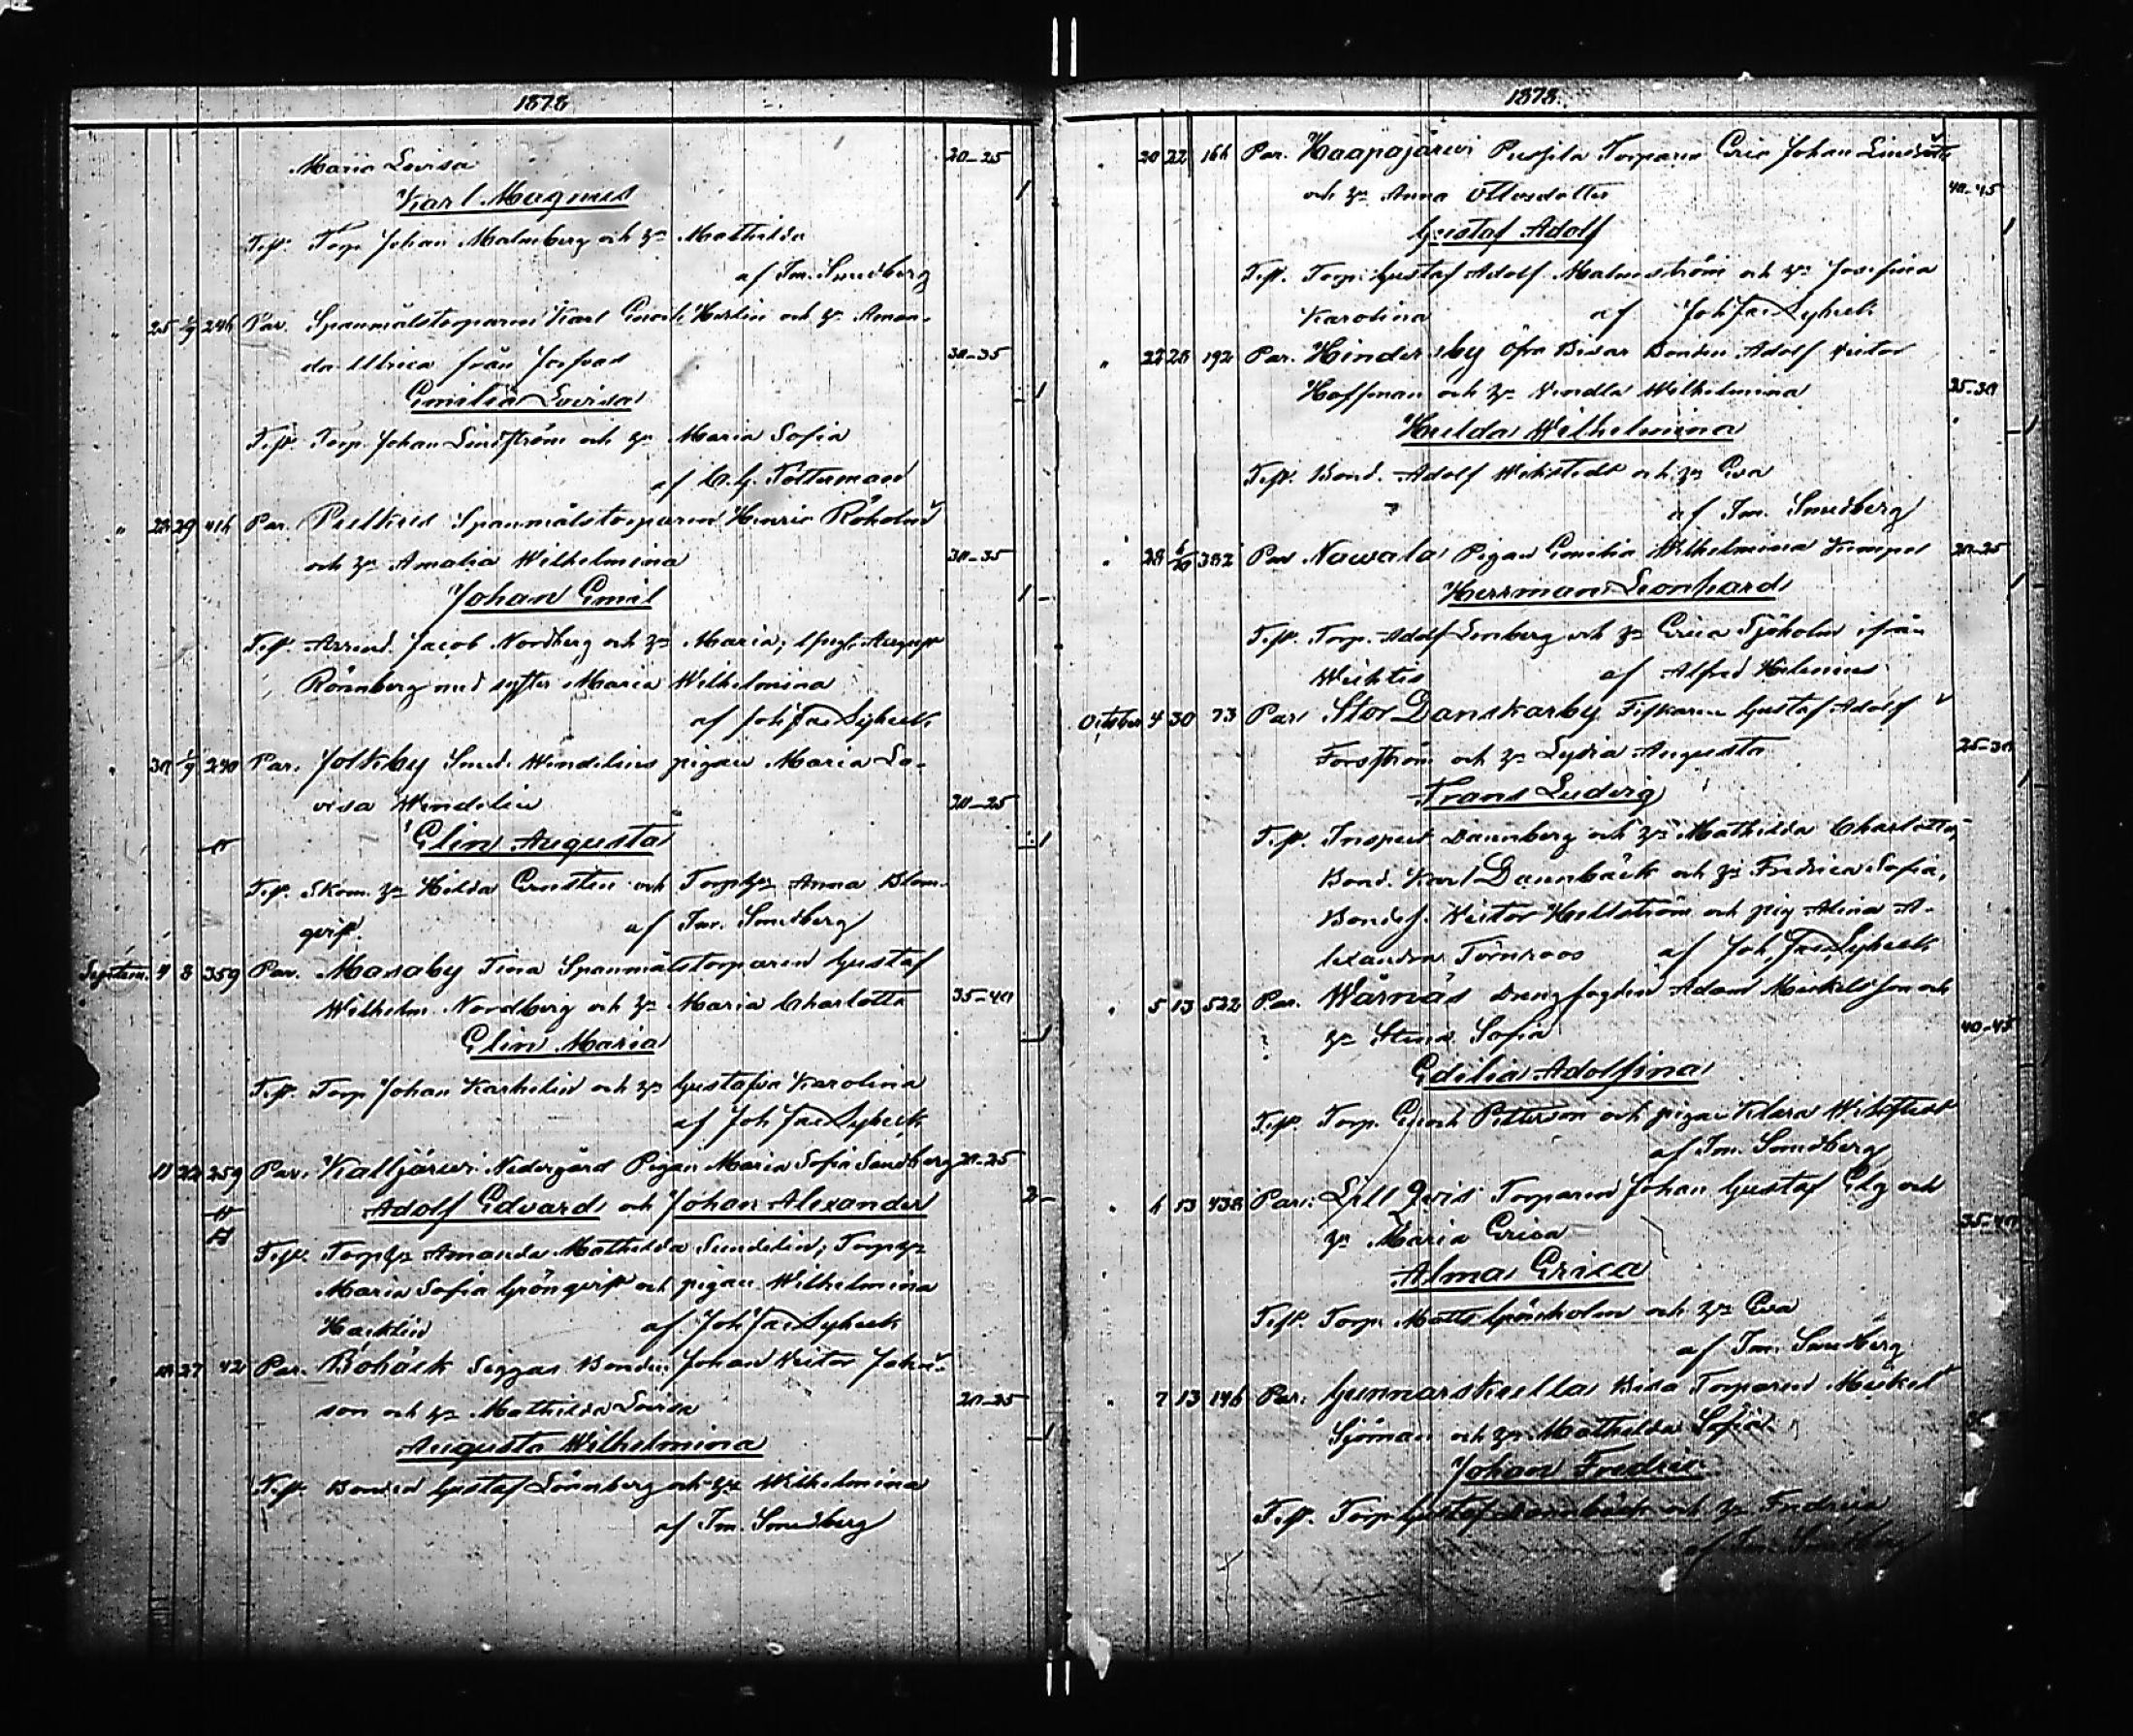 1878
Maria Lovisa 20-25
Karl Magnus 1
Test. Torp. Johan Malmberg och h:u Mathilda
af Im. Smedberg
" 25 1/9 246 Par. Spanmålstorparen Karl Enoch Herlin och h:u Aman-
da Ulrica från Jorfvas 30-35
Emilia Lovisa 1
Test. Torp. Johan Lindström och h:u Maria Sofia
af C. G. Totterman
" 28 29 416 Par. Peltus Spanmålstorparen Henric Röholm
och h:u Amalia Wilhelmina 30-35
Johan Emil 1
Test. Arrend. Jacob Nordberg och h:u Maria; August
Rönnberg med syster Maria Wilhelmina
af Joh Jac Lybeck
" 30 1/9 240 Par. Jolkby Smed. Wendelins pigan Maria Lo-
visa Wendelin 20-25
Elin Augusta 1
Test. Skom. h:u Hilda Ernsten och Torph:u Anna Blom-
qvist. af Im. Smedberg
Septem. 4 8 359 Par. Masaby Tina Spanmålstorparen Gustaf
Wilhelm Nordberg och h:u Maria Charlotta 35-40
Elin Maria 1
Test. Torp. Johan Karhelin och h:u Gustafva Karolina
af Joh Jac Lybeck
" 11 22 259 Par. Kalljärvi Nedergård Pigan Maria Sofia Sandberg 20-25
Adolf Edvard och Johan Alexander 2
Test. Torph:u Amanda Mathilda Sundelin; Torph:u
Maria Sofia Grönqvist och pigan Wilhelmina
Hacklin af Joh Jac Lybeck
27 42 Par. Böhäck Seggas Bonden Johan Victor Johans-
son och h:u Mathilda Lovisa 20-25
Augusta Wilhelmina 1
Test. Bonden Gustaf Lönnberg och h:u Wilhelmina
af Im. Smedberg
1878.
" 20 22 166 Par. Haapajärvi Pussila Torparen Eric Johan Lindstedt
och h:u Anna Ottosdotter 40-45
Gustaf Adolf 1
Test. Torp. Gustaf Adolf Malmström och h:u Josefina
Karolina af Joh Jac Lybeck
" 22 25 192 Par. Hindersby Öfra Bisas Bonden Adolf Victor
Hoffman och h:u Vendla Wilhelmina 25-30
Hulda Wilhelmina 1
Test. Bond. Adolf Wickstedt och h:u Eva
af Im. Smedberg
" 28 6/10 382 Par. Nawala Pigan Emilia Wilhelmina Kumpel 20-25
Herrman Leonhard 1
Test. Torp. Adolf Lenberg och h:u Erica Sjöholm ifrån
Wichtis af Alfred Helenius
October 4 30 73 Par. Stor Danskarby Fiskaren Gustaf Adolf
Forsström och h:u Lydia Augusta 25-30
Frans Ludvig 1
Test. Inspect. Dannberg och h:u Mathilda Charlotta,
Bond. Karl Dannbäck och h:u Fredrica Sofia,
Bondes. Victor Hellström och pig. Alina A-
lexandra Törnroos af Joh. Jac. Lybeck
" 5 13 522 Par. Wårnäs Drengfogden Adam Mickelsson och
h:u Stina Sofia 40-45
Edilia Adolfina
Test. Torp. Enoch Petterson och pigan Klara Wikstedt
af Im. Smedberg
" 6 13 438 Par: Lill Qvis Torparen Johan Gustaf Elg och
h:u Maria Erica 35-40
Alma Erica
Test. Torp. Matts Grönholm och h:u Eva
af Im. Smedberg
" 7 13 146 Par. Gunnarskulla Bisa Torparen Mickel
Sjöman och h:u Mathilda Sofia
Johan Fredric
Test. Torp. Gustaf Dannbäck och h:u Fredrica
af Im. Smedberg